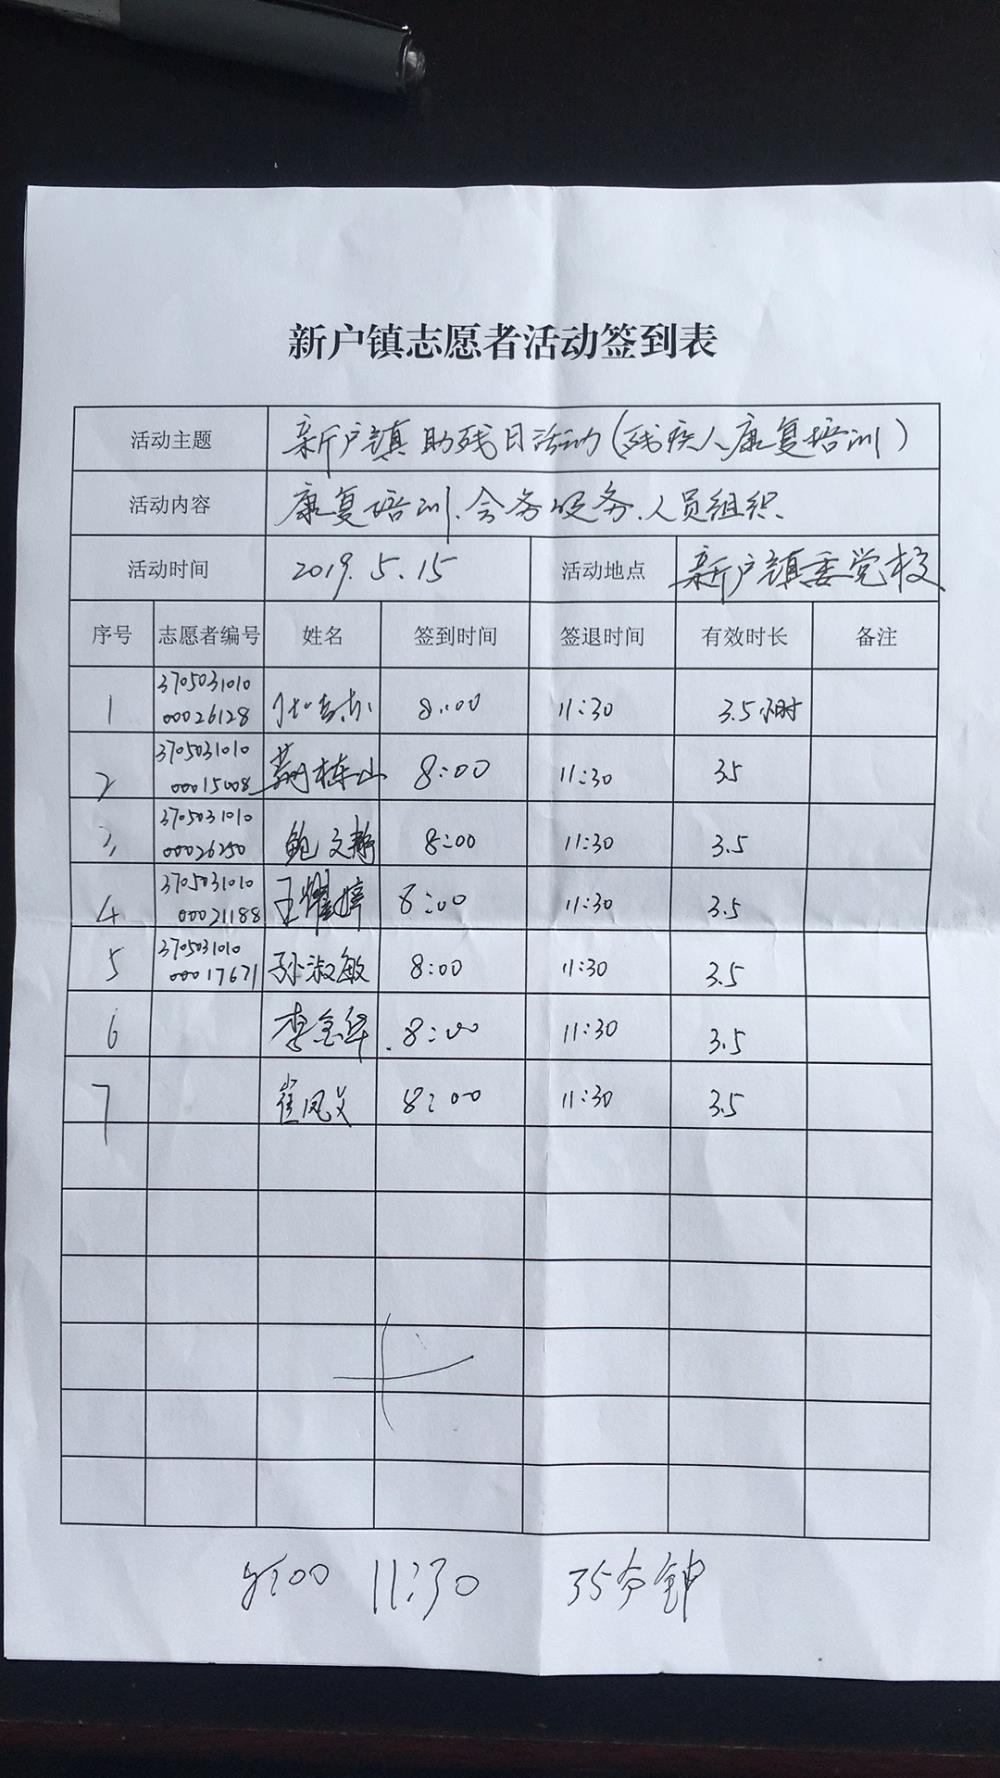 新户镇志愿者活动签到表
活动主题 新户镇助残日活动(残疾人康复培训)
活动内容 康复培训、会务服务、人员组织、
活动时间 2019.5.15 活动地点 新户镇委党校
序号 志愿者编号 姓名 签到时间 签退时间 有效时长 备注
3705031010
1 00026128 8:00 11:30 3.5小时
3705031010
2 00015008 栋山 8:00 11:30 3.5
3705031010
3 00026250 鲍文静 8:00 11:30 3.5
3705031010
4 00021188 王耀婷 8:00 11:30 3.5
3705031010
5 00017671 孙淑敏 8:00 11:30 3.5
6 李金华 8:00 11:30 3.5
7 崔凤 8:00 11:30 3.5
8:00 11:30 35分钟